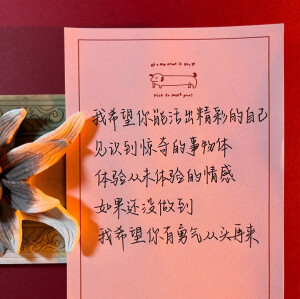 我希望你能活出精彩的自己
见识到惊奇的事物体
体验从未体验的情感
如果还没做到
我希望你有勇气从头再来